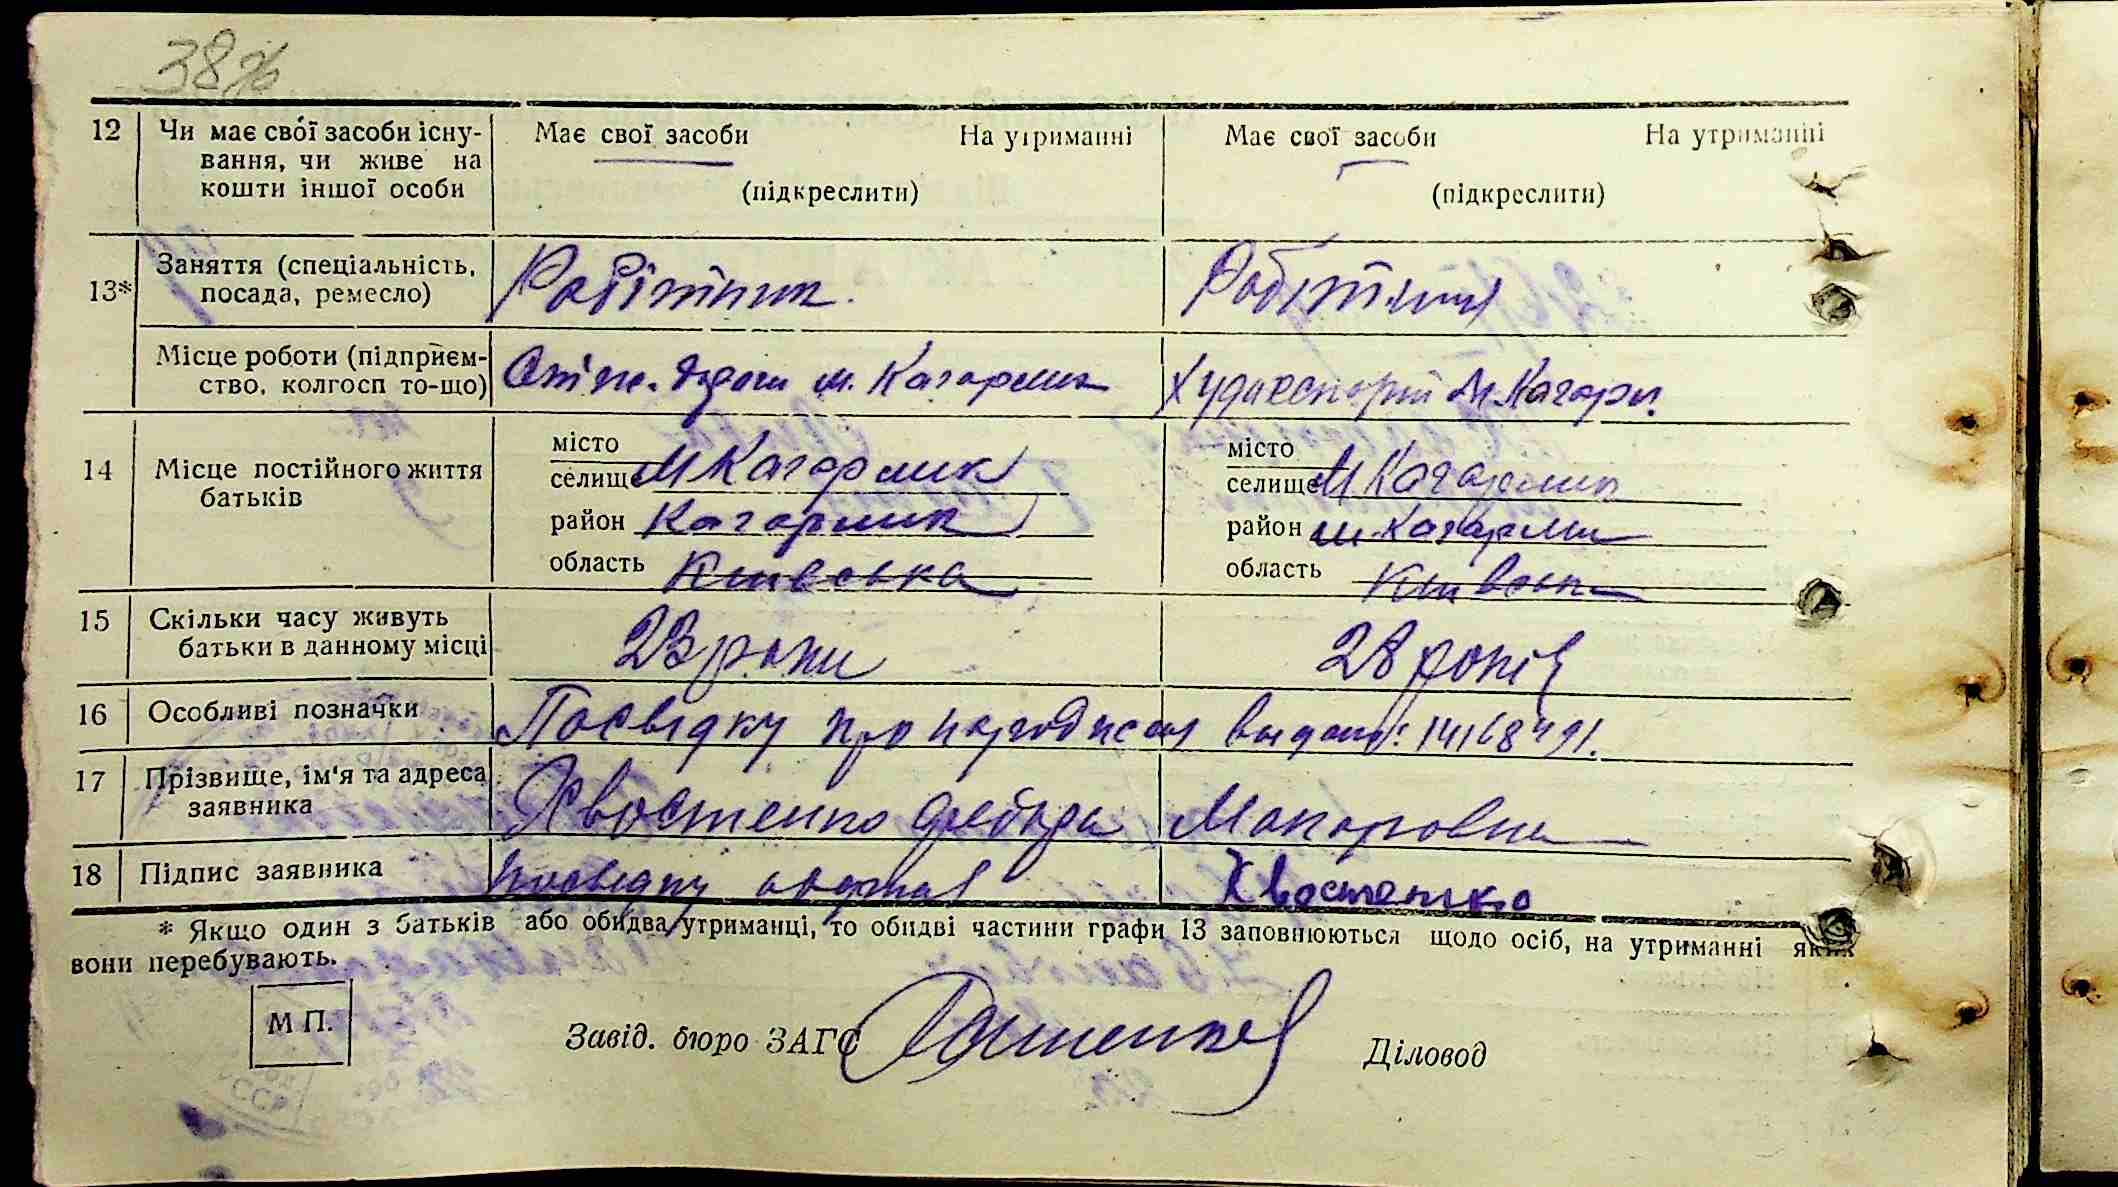 12 Чи має свої засоби існу- Має свої засоби На утриманні Має свої засоби На утриманні
вання, чи живе на
кошти іншої особи (підкреслити) (підкреслити)
13* Заняття (спеціальність, Робітник Робітниця
посада, ремесло)
Місце роботи (підприєм- м. Кагарлик м. Кагарл.
ство, колгосп то-що)
14 Місце постійного життя місто місто
батьків селище М Кагарлик селище М Кагарлик
район Кагарлик район м. Кагарли
область Київська область Київськ
15 Скільки часу живуть 23 роки 28 років
батьки в данному місці
16 Особливі позначки Посвідку про народження видано: 14168491.
17 Прізвище, ім'я та адреса Хвостенко Федора Макаровна
заявника
18 Підпис заявника посвідку одержав Хвостенко
* Якщо один з батьків або обидва утриманці, то обидві частини графи 13 заповнюються щодо осіб, на утриманні яких
вони перебувають.
М П. Завід. бюро ЗАГС Діловод